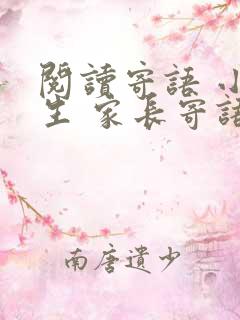 閱讀寄語 小
生 家長寄語
南唐遺少